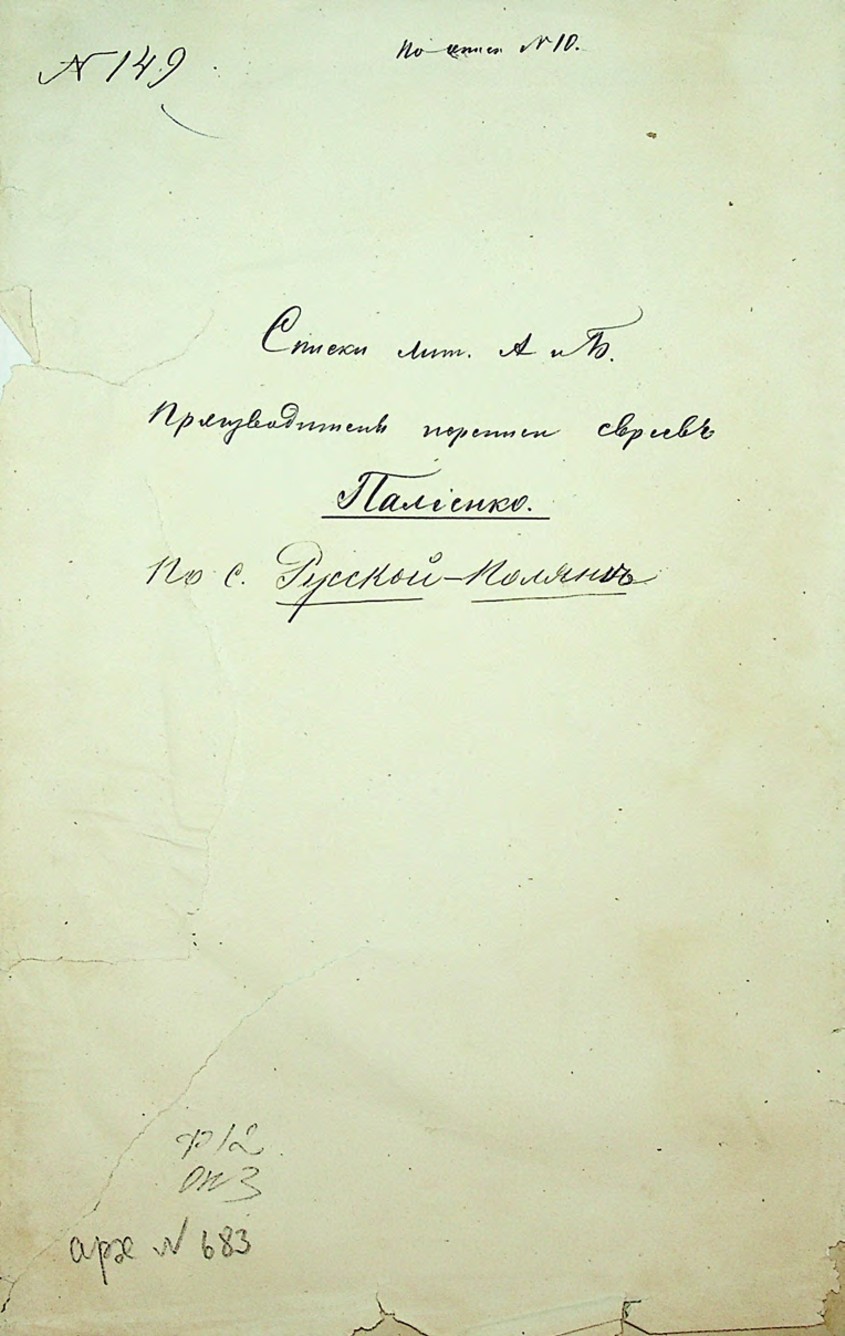 N 149
По описи N 10.
Списки лит. А и Б.
Производителя переписи евреевъ
Палiенко.
По с. Русской-Полянѣ
ф 12
оп 3
арх N 683